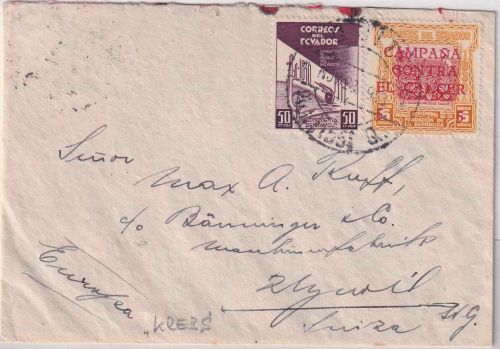 CORREOS
DEL
ECUADOR
50
50
CORREOS DEL ECUADOR
CAMPAÑA
CONTRA
EL CANCER
5
5
Señor
Max A.
c/o Bänninger & Co.
Maschinenfabrik
Uzwil
Suiza
Europa
"KREBS"